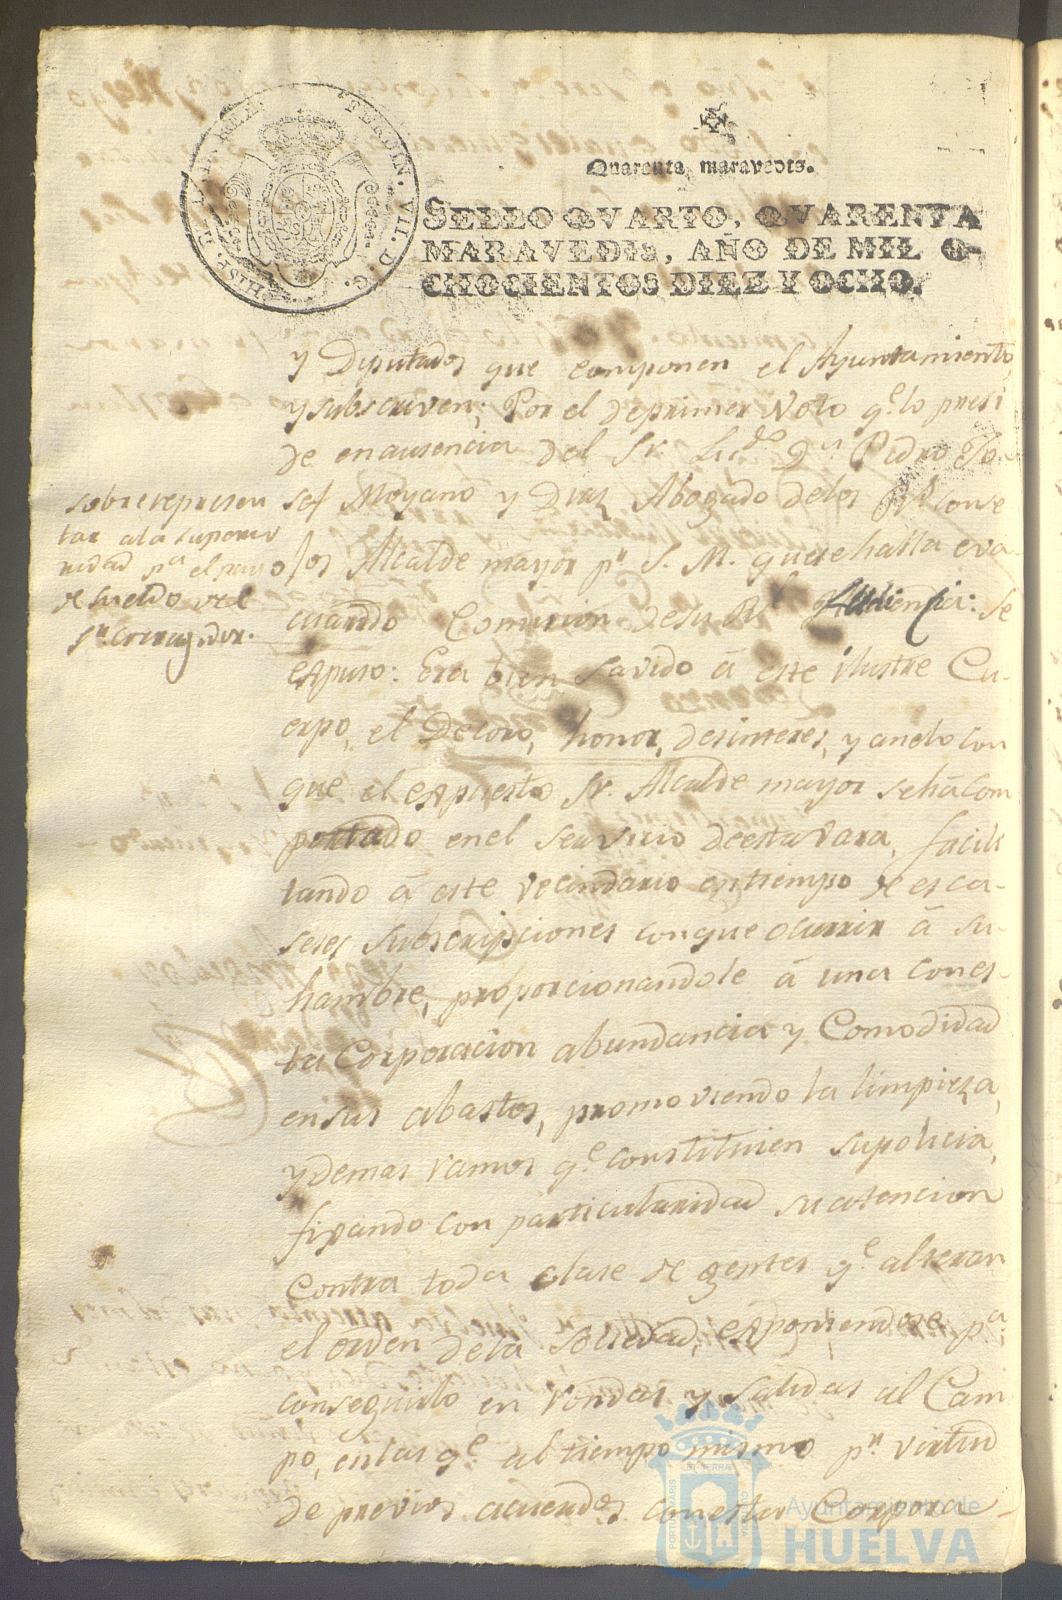 HISP. ET IND. REX FERDIN. VII. D. G.
Quarenta maravedis.
SELLO QVARTO, QVARENTA
MARAVEDIS, AÑO DE MIL O-
CHOCIENTOS DIEZ Y OCHO.
y Diputados que componen el Ayuntamiento,
y subscriven; Por el de primer Voto q.e lo presi
de en ausencia del Sr. Lic.do D.n Pedro Jo-
sef Moyano y Diaz Abogado delos R.s Conse
jos Alcalde mayor p.r S. M. que se halla eva-
cuando Comision de su R.l Audiencia: Se
espuso: Era bien savido á este ilustre Cu-
erpo, el Decoro, honor, desinteres, y anelo con
que el espuesto Sr. Alcalde mayor se há com
portado en el servicio de esta vara, facili
tando á este vecindario en tiempo de esca-
seses subscripciones con que ocurrir á su
hambre, proporcionandole á una con es-
ta Corporacion abundancia y Comodidad
en sus abastos, promoviendo la limpieza,
y demas ramos q.e constituien su policia,
fixando con particularidad su atencion
contra toda clase de gentes q.e alteran
el orden de la Sociedad, esponiendose p.a
conseguirlo en rondas y salidas al Cam
po, en las q.e al tiempo mismo p.r virtud
de previos acuerdos con esta Corpora-
sobre represen
tar a la superio
ridad p.a el pago
de sueldo del
S.r corregidor.
Ayuntamiento de
HUELVA